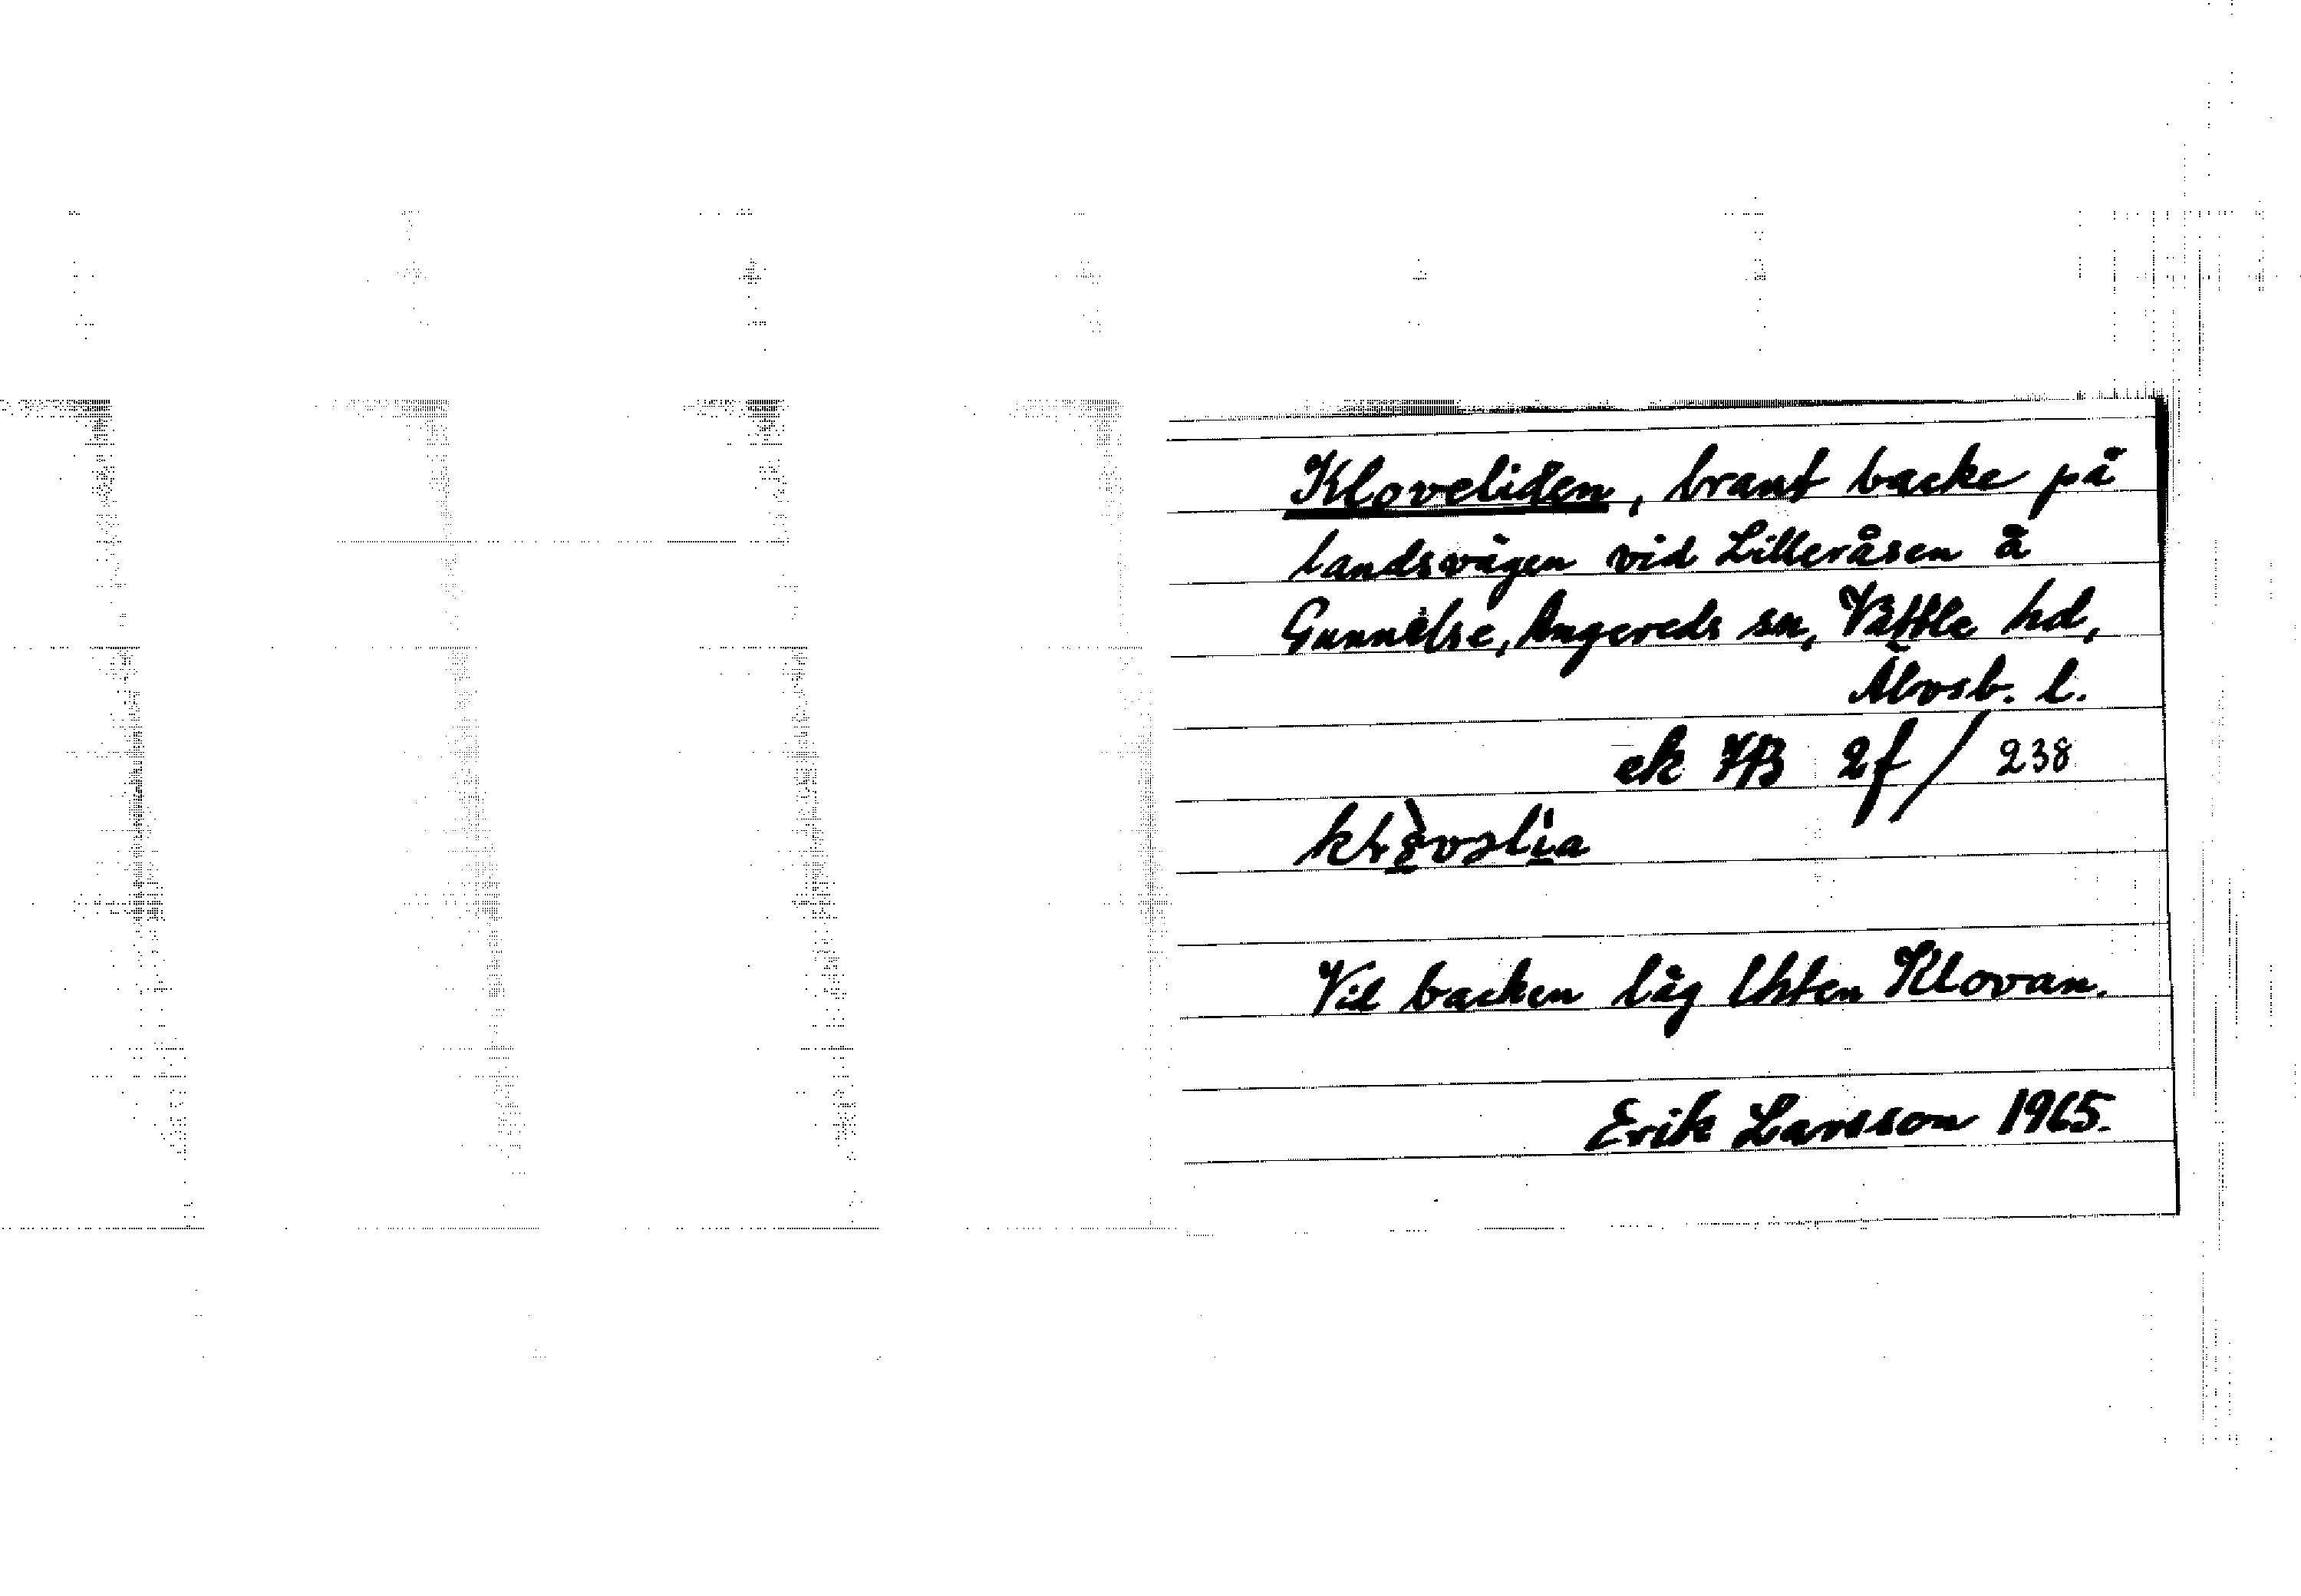 Kloveliden, brant backe på
landsvägen vid Lilleråsen å
Gunnilse, Angereds sn, Vättle hd,
Älvsb. l.
ek 7B 2f / 238
Vid backen låg lhten Klovan.
Erik Larsson 1965.